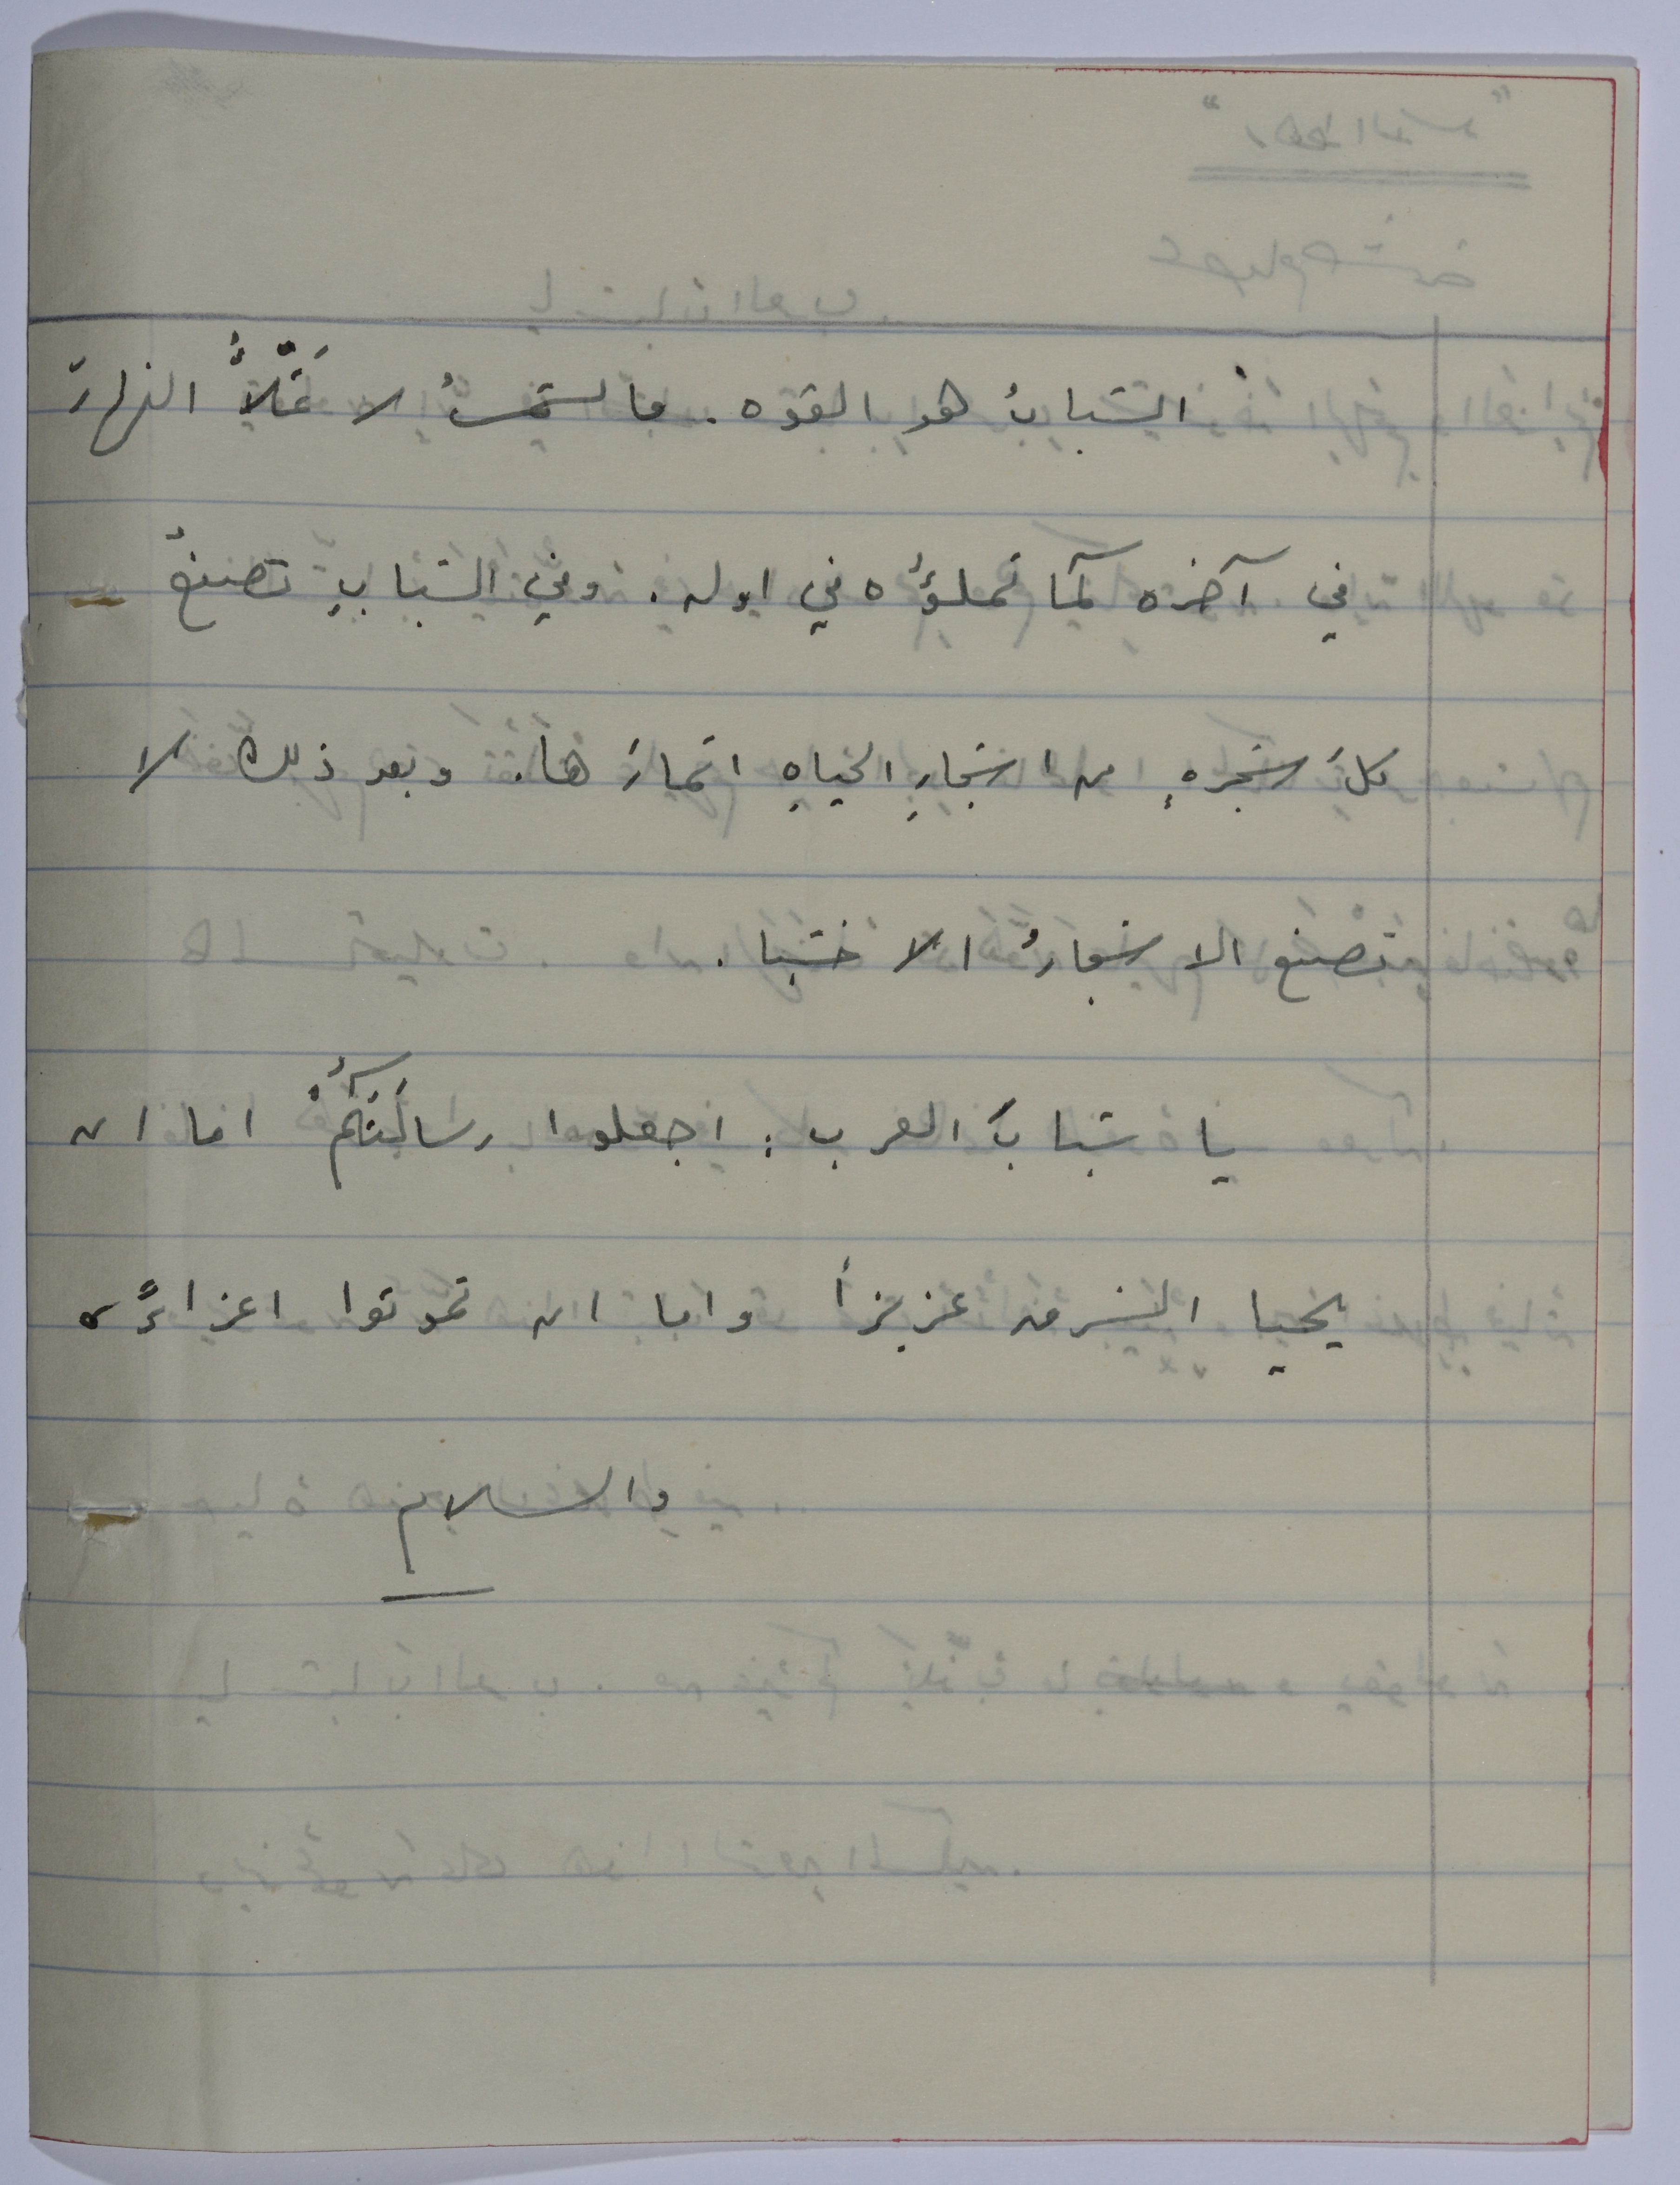 الشبابُ هو القوه. فالشمسُ لا تملأُ النهارَ
في آخره كما تملؤُه في اوله. وفي الشبابِ تصنعُ
كلُ شجرهٍ من اشجارِ الحياهِ اثمارَها. وبعد ذلك لا
تصنع الاشجارُ الا خشبا.
يا شبابَ العرب: اجعلوا رسالَتَكُمْ اما ان
يحيا الشرق عزيزاً واما ان تموتوا اعزاءً
والسلام